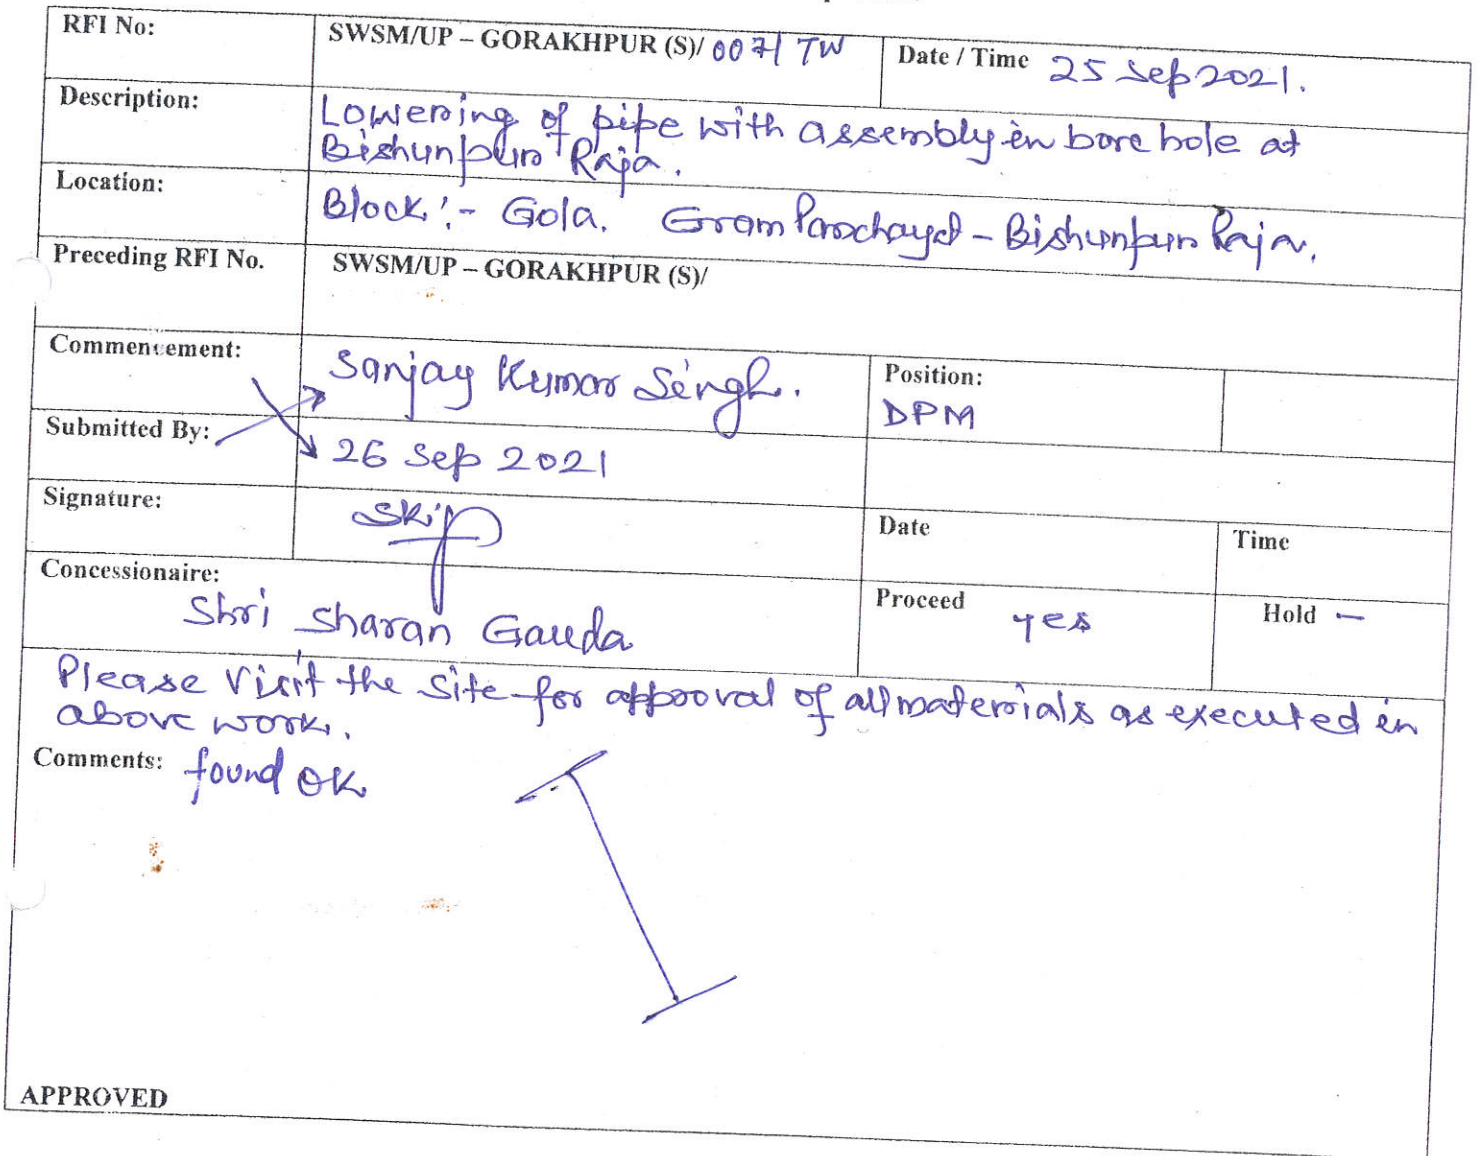 RFI No: SWSM/UP – GORAKHPUR (S)/ 007/ TW Date / Time 25 Sep 2021.
Description: Lowering of pipe with assembly in bore hole at
Bishunpur Raja.
Location: Block:- Gola. Gram Panchayat - Bishunpur Raja.
Preceding RFI No. SWSM/UP – GORAKHPUR (S)/
Commencement: Sanjay Kumar Singh. Position:
DPM
Submitted By: 26 Sep 2021
Signature:
Date Time
Concessionaire:
Shri Sharan Gauda
Proceed yes Hold –
Please Visit the Site for approval of all materials as executed in
above work.
Comments: found OK
APPROVED